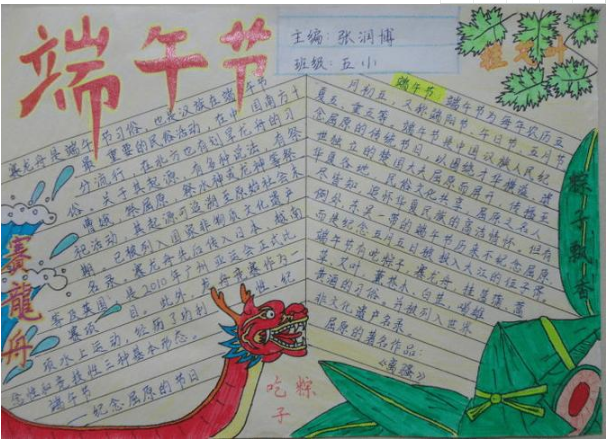 端午节
主编：张润博
班级：五小
挂艾叶
赛龙舟是端午节习俗，也是汉族在端午节
最重要的民俗活动，在中国南方十
分流行，在北方也有划旱龙舟的习
俗。关于其起源，有多种说法，有祭
曹娥，祭屈原，祭水神或龙神等祭
祀活动，其起源可追溯至原始社会末
期。已被列入国家非物质文化遗产
名录。赛龙舟先后传入日本、越南
等及英国，是2010年广州亚运会正式比
赛项目。
项水上运动，
念性和竞技性三种基本形态。
端午节
纪念屈原的节日
赛龍舟
端午节：端午节为每年农历五
月初五，又称端阳节、午日节、五月节
夏五、重五等。端午节是中国汉族人民纪
念屈原的传统节日，以围绕才华横溢、遗
世独立的楚国大夫屈原而展开，传播至
华夏各地，民俗文化共享，屈原之名人
尽皆知，追怀华夏民族的高洁情怀。但有
例外，东吴一带的端午节历来不纪念屈原，
而是纪念五月五日被投入大江的伍子胥，
端午节有吃粽子，赛龙舟，挂菖蒲、蒿
草、艾叶，薰苍术、白芷，喝雄
黄酒的习俗。
非文化遗产名录。
屈原的著名作品：
《离骚》
粽子飘香
吃粽子